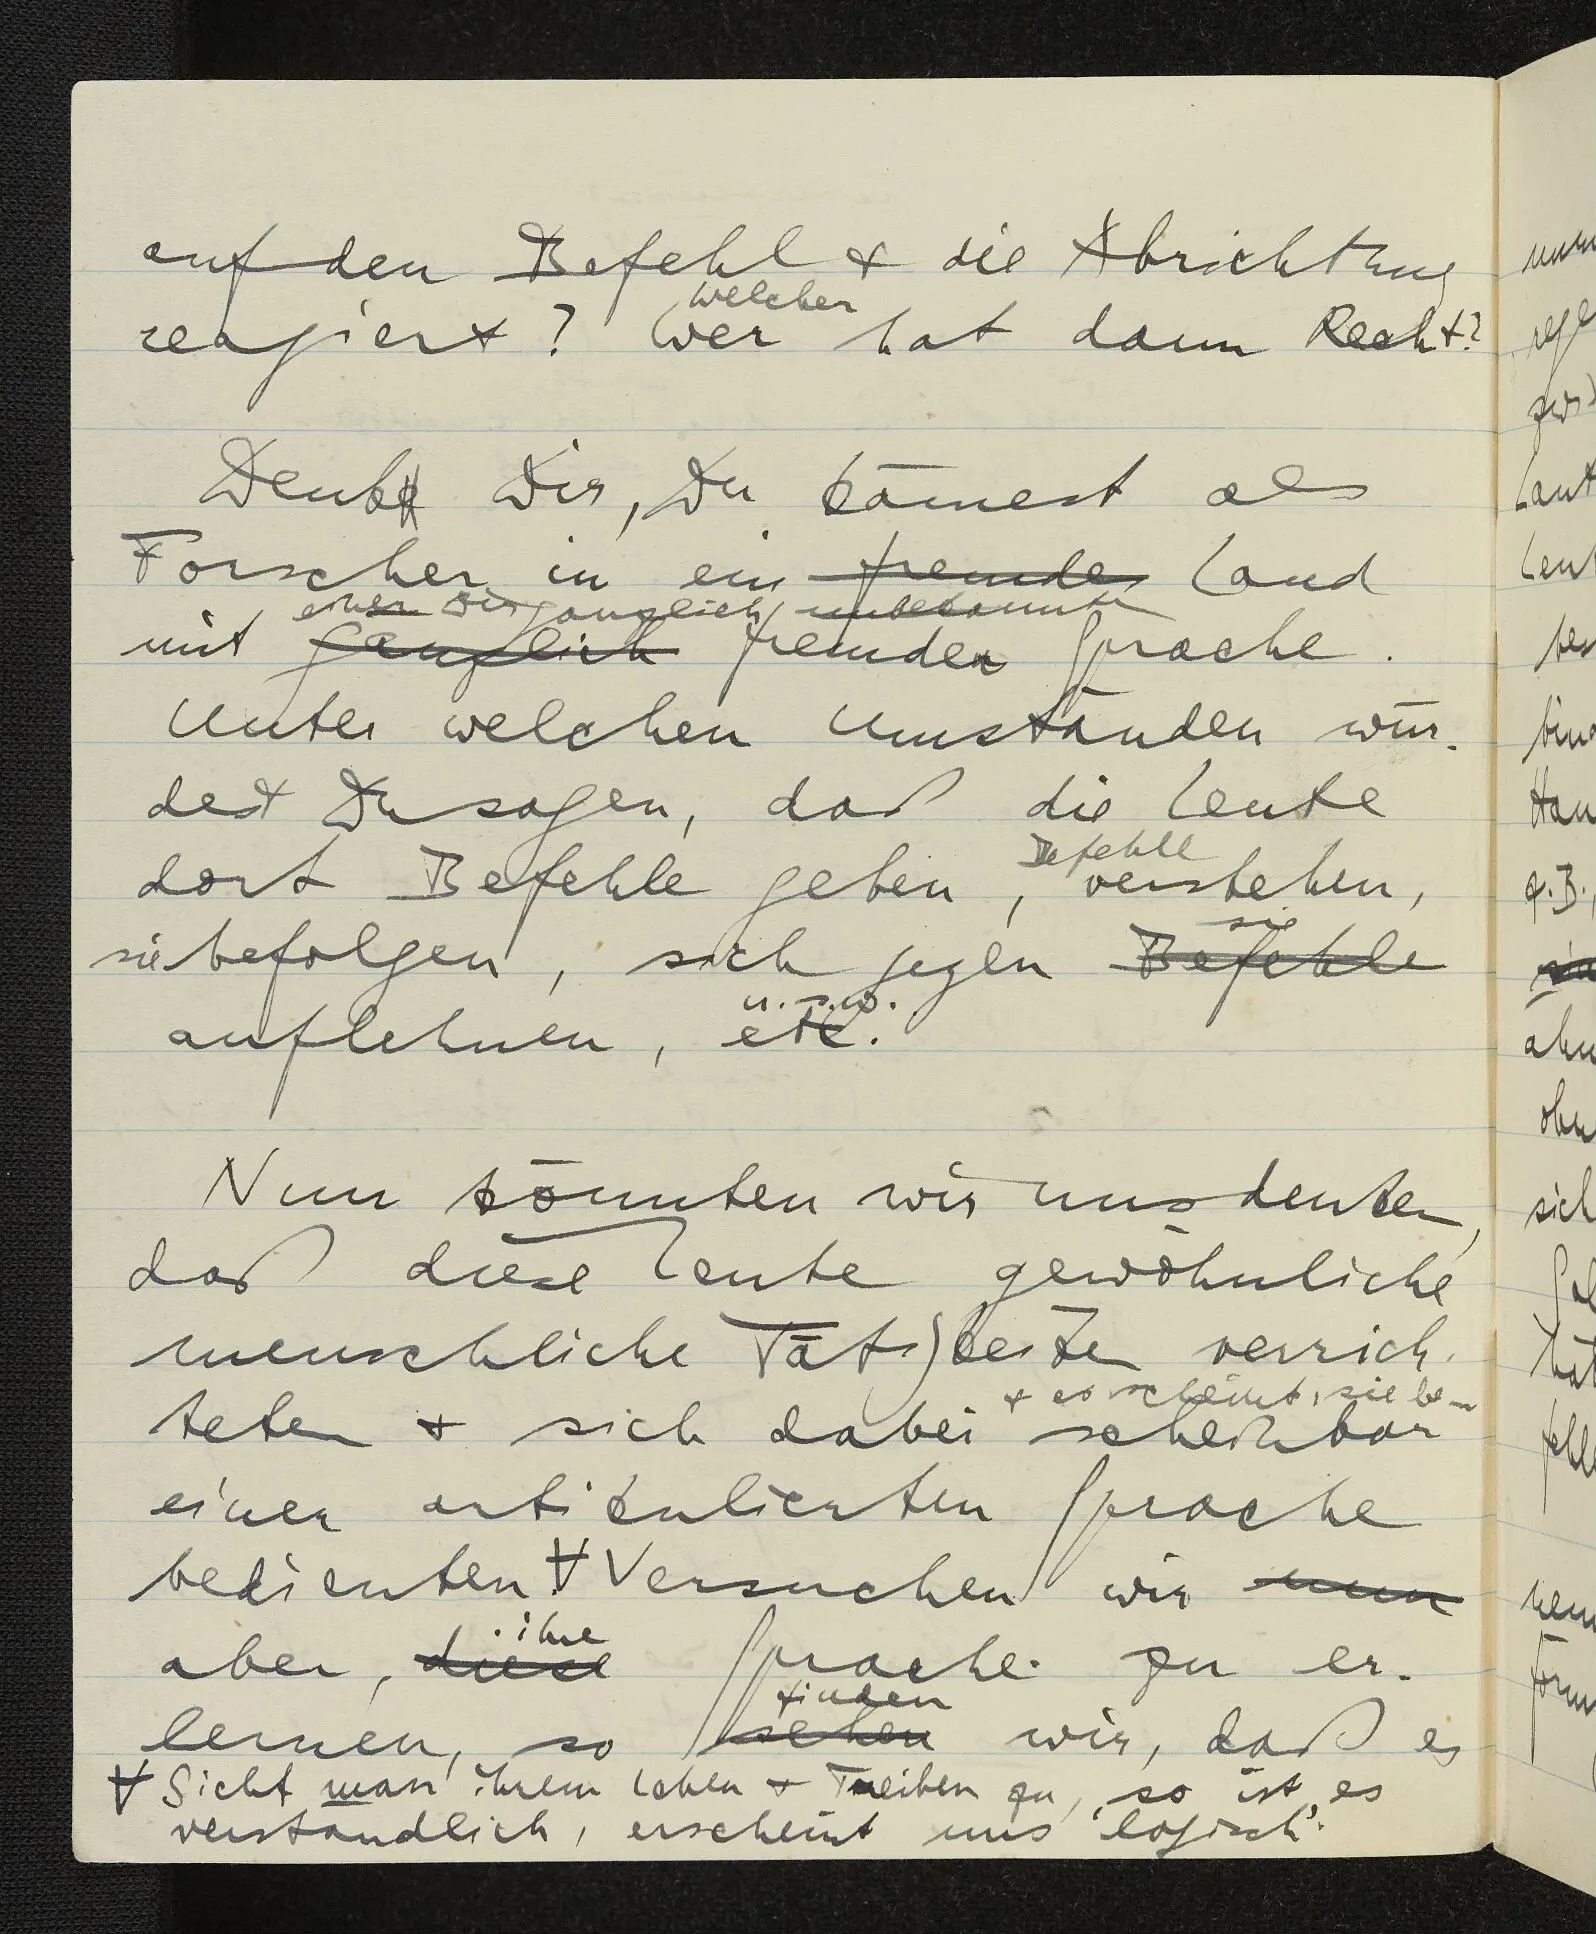 auf den Befehl & die Abrichtung
welcher
reagiert? Wer hat dann Recht?
Denk Dir, Du kämest als
Forscher in ein fremdes Land
einer Dir gänzlich unbekannten
mit gänzlich fremder Sprache.
Unter welchen Umständen wür-
dest Du sagen, daß die Leute
Befehle
dort Befehle geben, verstehen,
sie
sie befolgen, sich gegen Befehle
u.s.w.
auflehnen, etc.
Nun könnten wir uns denken,
daß diese Leute gewöhnliche
menschliche Tätigkeiten verrich-
& es scheint, sie be-
teten & sich dabei scheinbar
einer artikulierten Sprache
bedienten ∀ Versuchen wir nun
ihre
aber, diese Sprache zu er-
finden
lernen, so sehen wir, daß es
∀ Sieht man ihrem Leben & Treiben zu, so ist es
verständlich, erscheint uns 'logisch'.